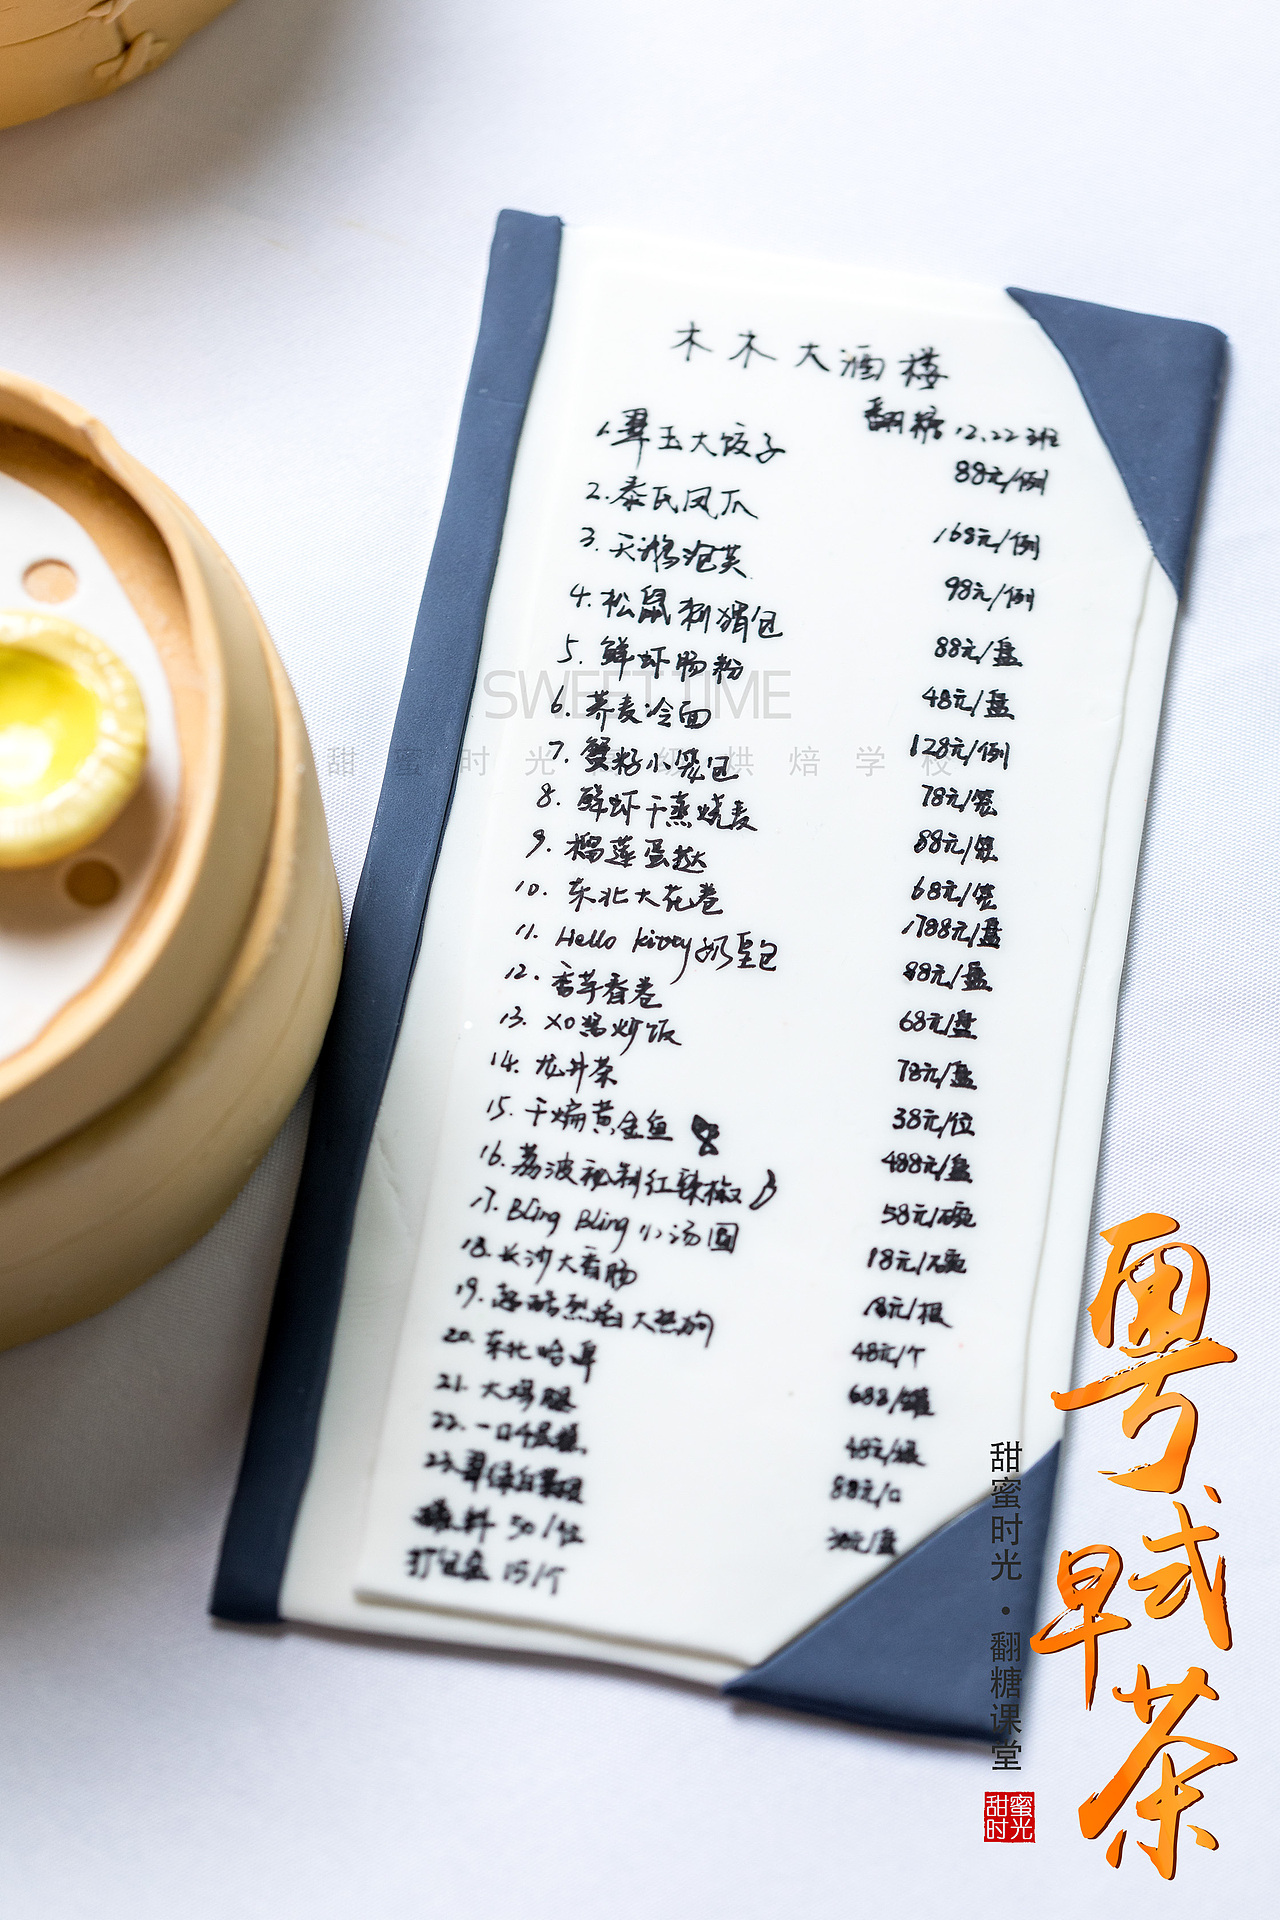 木木大酒楼
翻糖12.22班
1.翠玉大饺子 88元/例
2.泰氏凤爪 168元/例
3.天鹅泡芙 98元/例
4.松鼠刺猬包 88元/盘
5.鲜虾肠粉 48元/盘
6.荞麦冷面 128元/例
7.蟹籽小笼包 78元/笼
8.鲜虾干蒸烧麦 88元/笼
9.榴莲蛋挞 68元/笼
10.东北大花卷 1788元/盘
11.Hello kitty奶皇包 88元/盘
12.香芋春卷 68元/盘
13.XO酱炒饭 78元/盘
14.龙井茶 38元/位
15.干煸黄金鱼 488元/盘
16.荔波秘制红辣椒 58元/碗
17.Bling Bling小汤圆 18元/碗
18.长沙大香肠 18元/根
19.超酷烈焰大热狗 48元/个
20.东北哈啤 688/罐
21.大鸡腿 48元/根
22.一口千层糕 88元/口
23.翠绿 元/盘
料 50/位
打包盒 15/个
SWEET TIME
甜蜜时光 烘焙学校
粤式早茶
甜蜜时光·翻糖课堂
甜蜜时光